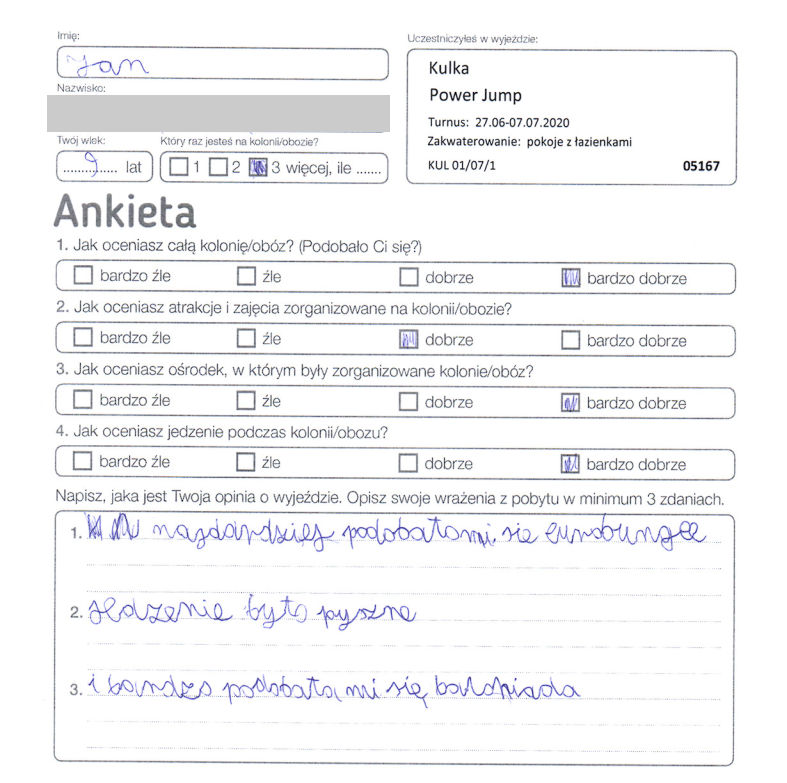 Imię:
Jan
Uczestniczyłeś w wyjeździe:
Kulka
Power Jump
Turnus: 27.06-07.07.2020
Zakwaterowanie: pokoje z łazienkami
KUL 01/07/1 05167
Nazwisko:
Twój wiek:
9 lat
Który raz jesteś na kolonii/obozie?
1 2 3 więcej, ile .......
Ankieta
1. Jak oceniasz całą kolonię/obóz? (Podobało Ci się?)
bardzo źle źle dobrze bardzo dobrze
2. Jak oceniasz atrakcje i zajęcia zorganizowane na kolonii/obozie?
bardzo źle źle dobrze bardzo dobrze
3. Jak oceniasz ośrodek, w którym były zorganizowane kolonie/obóz?
bardzo źle źle dobrze bardzo dobrze
4. Jak oceniasz jedzenie podczas kolonii/obozu?
bardzo źle źle dobrze bardzo dobrze
Napisz, jaka jest Twoja opinia o wyjeździe. Opisz swoje wrażenia z pobytu w minimum 3 zdaniach.
1. najdardziej podobało mi sie eurobungee
2. jedzenie było pyszne
3. i bardzo podobała mi się